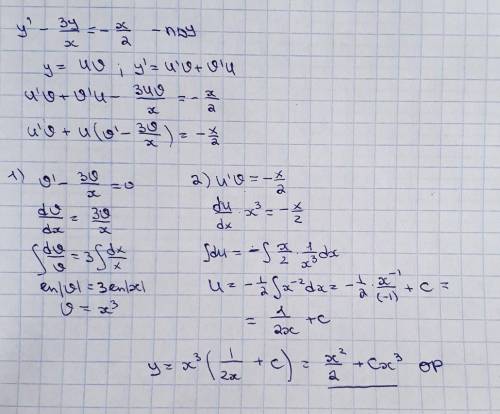 y' - 3y/x = -x/2 - ЛДУ
y = uϑ ; y' = u'ϑ + ϑ'u
u'ϑ + ϑ'u - 3uϑ/x = -x/2
u'ϑ + u(ϑ' - 3ϑ/x) = -x/2
1) ϑ' - 3ϑ/x = 0
dϑ/dx = 3ϑ/x
∫dϑ/ϑ = 3∫dx/x
ln|ϑ| = 3ln|x|
ϑ = x³
2) u'ϑ = -x/2
du/dx · x³ = -x/2
∫du = -∫x/2 · 1/x³ dx
u = -1/2 ∫x⁻²dx = -1/2 · x⁻¹/(-1) + C =
= 1/2x + C
y = x³(1/2x + C) = x²/2 + Cx³ ОР